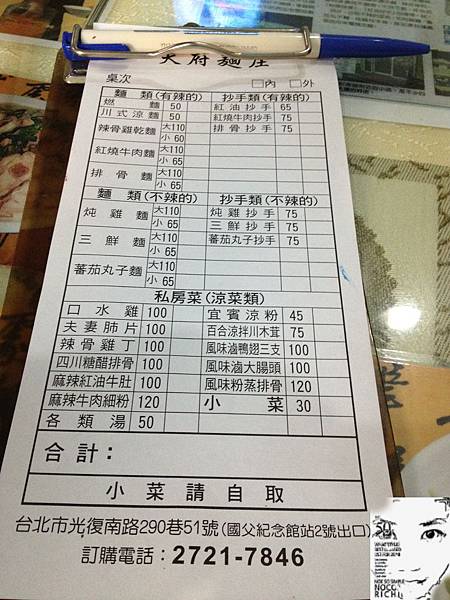 天府麵庄
桌次 □內 □外
麵 類(有辣的) 抄手類(有辣的)
燃 麵 50 紅油抄手 65
川式涼麵 50 紅燒牛肉抄手 75
辣骨雞乾麵 大110 小 60 排骨抄手 75
紅燒牛肉麵 大110 小 65
排骨麵 大110 小 65
麵 類(不辣的) 抄手類(不辣的)
炖雞麵 大110 小 65 炖雞抄手 75
三鮮麵 大110 小 65 三鮮抄手 75
蕃茄丸子麵 大110 小 65 蕃茄丸子抄手 75
私房菜(涼菜類)
口水雞 100 宜賓涼粉 45
夫妻肺片 100 百合涼拌川木茸 75
辣骨雞丁 100 風味滷鴨翅三支 100
四川糖醋排骨 100 風味滷大腸頭 100
麻辣紅油牛肚 100 風味粉蒸排骨 120
麻辣牛肉細粉 120 小菜 30
各類湯 50
合計：
小菜請自取
台北市光復南路290巷51號(國父紀念館站2號出口)
訂購電話：2721-7846